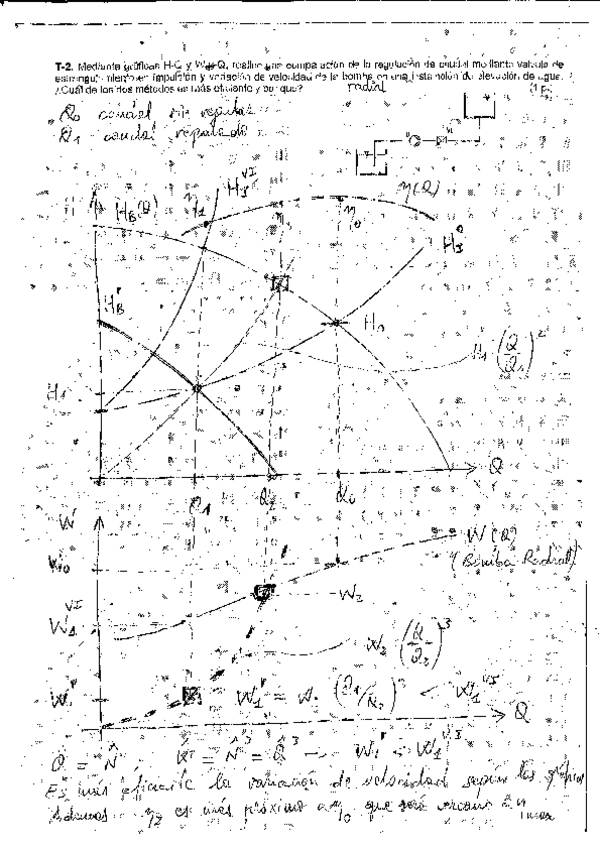 T-2. Mediante gráficas H-Q y W-Q, realice una comparación de la regulación de caudal mediante válvula de
estrangulamiento en impulsión y variación de velocidad de la bomba en una instalación de elevación de agua.
¿Cuál de los dos métodos es más eficiente y por qué?
radial
Q₀ caudal sin regular
Q₁ caudal regulado
H_B(Q) η₁ H_I^VI η₀ η(Q)
H_I^0
H_B'
H₀
H₁ (Q/Q₁)²
H₁
Q₁ Q₂ Q₀ Q
W
W₀ W(Q)
(Bomba Radial)
W₁^VI W₂
W₂ (Q/Q₂)³
W₁' W₁' = W₂ (Q₁/Q₂)³ < W₁^VI
Q
Q̂ = N̂ Ŵ = N̂³ = Q̂³ W₁' < W₁^VI
Es más eficiente la variación de velocidad según las gráficas
Además η₂ es más próximo a η₀ que será cercano a η max